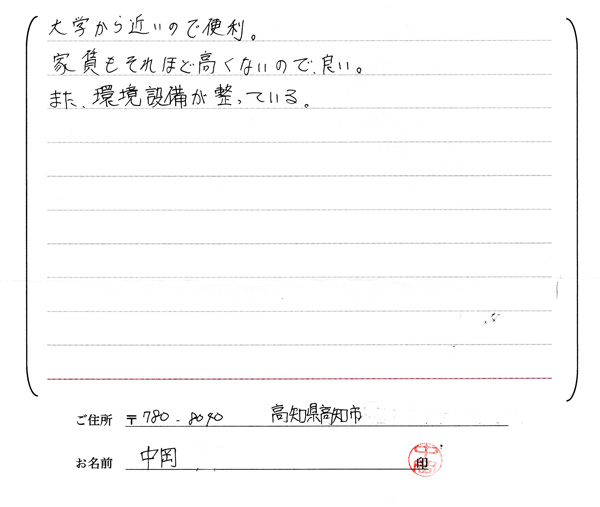 大学から近いので便利。
家賃もそれほど高くないので、良い。
また、環境設備が整っている。
ご住所 〒780-8040 高知県高知市
お名前 中岡 印